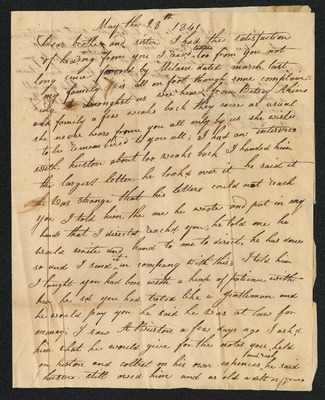 May the 28th 1841
Dear brother and sister I had the satisfaction
of hearing from you I recd a letter from you not
long since by Milan dated march last
my family is all on foot though some complain
ing amongst us we heard from Betsy
and family a few weaks back they were as usual
she never hears from you all only by us she wishes
to be remembered to you all; I had an interview
with huston about too weaks back I handed him
the largest letter he look'd over it he said it
was strange that his letters could not reach
you I told him the one he wrote and put in my
hands that I directed reach'd you; he told me he
would write and hand to me to direct, he has done
so and I send it in company with this, I told him
I thought you had bore with a heap of patience with
him he sd you had treted him like a gentleman and
he would pay you he said he was at law for
money; I saw A Burton a few days ago I ask'd
him what he would give for the notes you held
on huston and collect on his own expences, he said
huston still owed him and